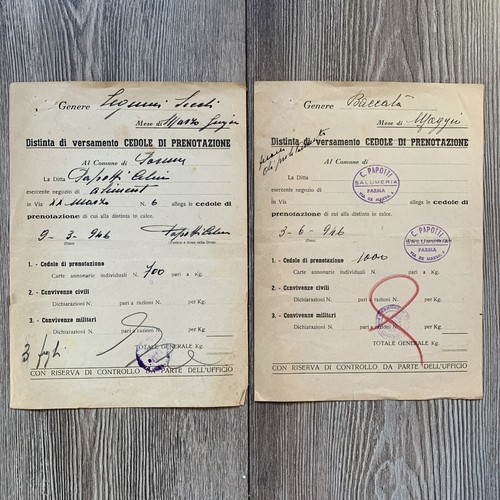 Genere Legumi Secchi
Mese di Marzo Giugno
Distinta di versamento CEDOLE DI PRENOTAZIONE
Al Comune di Parma
La Ditta Papotti
esercente negozio di aliment
in Via XX Marzo N. 6 allega le cedole di
prenotazione di cui alla distinta in calce.
9-3-946 Papotti
(Data) (Timbro e firma della Ditta)
1. - Cedole di prenotazione
Carte annonarie individuali N. 700 pari a Kg.
2. - Convivenze civili
Dichiarazioni N. pari a razioni N. per Kg.
3. - Convivenze militari
Dichiarazioni N. pari a razioni N. per Kg.
TOTALE GENERALE Kg.
3 fogli
CON RISERVA DI CONTROLLO DA PARTE DELL'UFFICIO
Genere Baccalà
Mese di Maggio
Distinta di versamento CEDOLE DI PRENOTAZIONE
Al Comune di
La Ditta
esercente negozio di
in Via N. allega le cedole di
prenotazione di cui alla distinta in calce.
C. PAPOTTI
SALUMERIA
PARMA
VIA XX MARZO, 6
3-6-946
(Data)
C. PAPOTTI
SALUMERIA
PARMA
VIA XX MARZO, 6
1. - Cedole di prenotazione
Carte annonarie individuali N. 1000 pari a Kg.
2. - Convivenze civili
Dichiarazioni N. pari a razioni N. per Kg.
3. - Convivenze militari
Dichiarazioni N. pari a razioni N. per Kg.
TOTALE GENERALE Kg.
CON RISERVA DI CONTROLLO DA PARTE DELL'UFFICIO